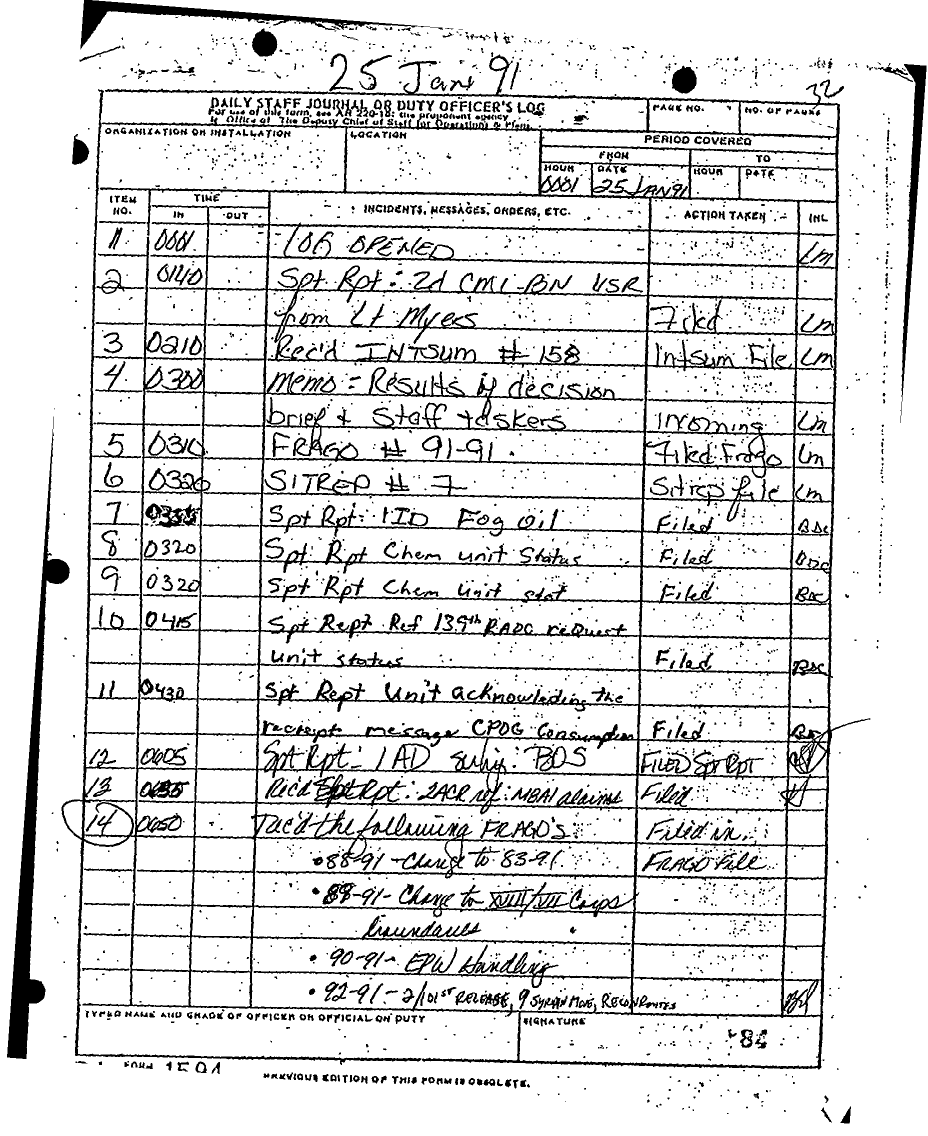 25 Jan 91
32
DAILY STAFF JOURNAL OR DUTY OFFICER'S LOG
For use of this form, see AR 220-15; the proponent agency
is Office of The Deputy Chief of Staff for Operations & Plans.
PAGE NO.
NO. OF PAGES
ORGANIZATION OR INSTALLATION
LOCATION
PERIOD COVERED
FROM
TO
HOUR
DATE
HOUR
DATE
0001
25 JAN 91
ITEM NO.
TIME
IN
OUT
INCIDENTS, MESSAGES, ORDERS, ETC.
ACTION TAKEN
INL
1 0001 LOG OPENED Lm
2 0140 Spt Rpt: 2d CML BN USR
from Lt Myers Filed Lm
3 0210 Rec'd INTSUM # 158 Intsum File Lm
4 0300 memo = Results of decision
brief & Staff taskers incoming Lm
5 0310 FRAGO # 91-91. Filed Frago Lm
6 0320 SITREP # 7 Sitrep file Lm
7 Spt Rpt: 1ID Fog Oil Filed BDC
8 0320 Spt Rpt Chem unit Status Filed BDC
9 0320 Spt Rpt Chem Unit stat Filed BDC
10 0415 Spt Rept Ref 139th RAOC request
unit status Filed BDC
11 0430 Spt Rept Unit acknowleding the
receipt message CPOG Consumption Filed
12 0605 Spt Rpt: 1AD subj: BDS FILED Spt Rpt
13 0635 Rec'd Spt Rpt: 2ACR ref: M8A1 alarms Filed
14 0650 the following FRAGO's Filed in
• 88-91 - Change to 83-91 FRAGO File
• 89-91 - Change to XVIII/VII Corps
boundaries
• 90-91 - EPW Handling
• 92-91 - 2/101ST RELEASE, 9 SYRIAN MOVE, RECON ROUTES
TYPED NAME AND GRADE OF OFFICER OR OFFICIAL ON DUTY
SIGNATURE
84
FORM 1594
PREVIOUS EDITION OF THIS FORM IS OBSOLETE.